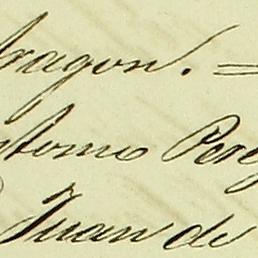 Aragon. =
Antonio Pere
Juan de